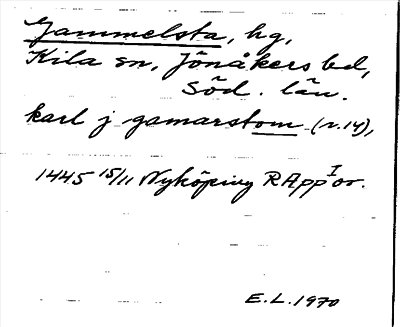 Gammelsta, hg,
Kila sn, Jönåkers hd,
Söd. län.
karl j gamarstom (r. 14),
1445 15/11 Nyköping RAppI or.
E.L. 1970